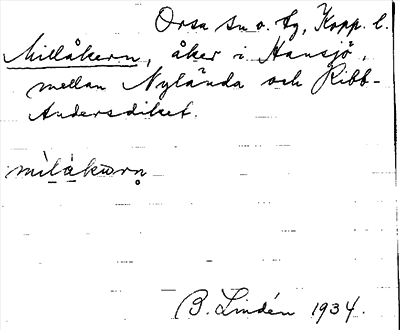 Orsa sn o. tg, Kopp. l.
Millåkern, åker i Hansjö,
mellan Nylända och Ribb-
Andersdiket.
mìlàkωrn̥
B. Lindén 1934.